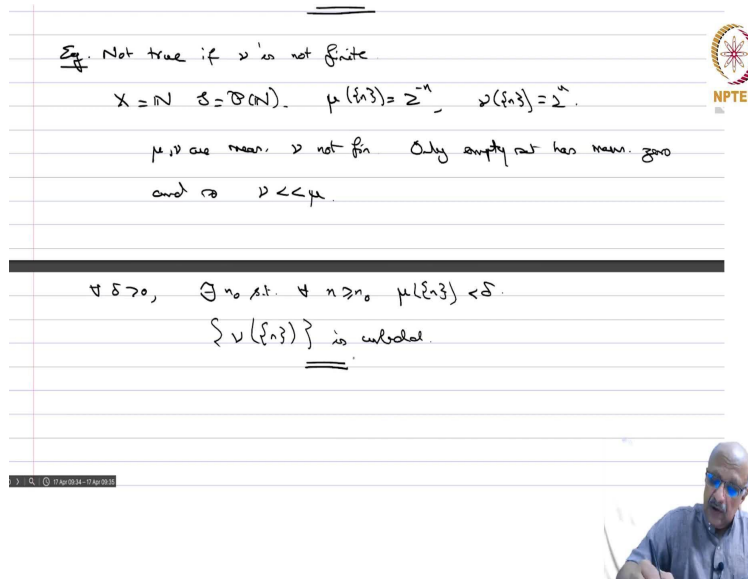 Eg. Not true if ν is not finite.
X = ℕ S = 𝒫(ℕ). μ({n}) = 2^{-n}, ν({n}) = 2^n.
NPTE
μ, ν are meas. ν not fin. Only empty set has meas. zero
and so ν << μ.
∀ δ > 0, ∃ n₀ s.t. ∀ n ≥ n₀ μ({n}) < δ.
{ν({n})} is unbdd.
17 Apr 09:34 - 17 Apr 09:35